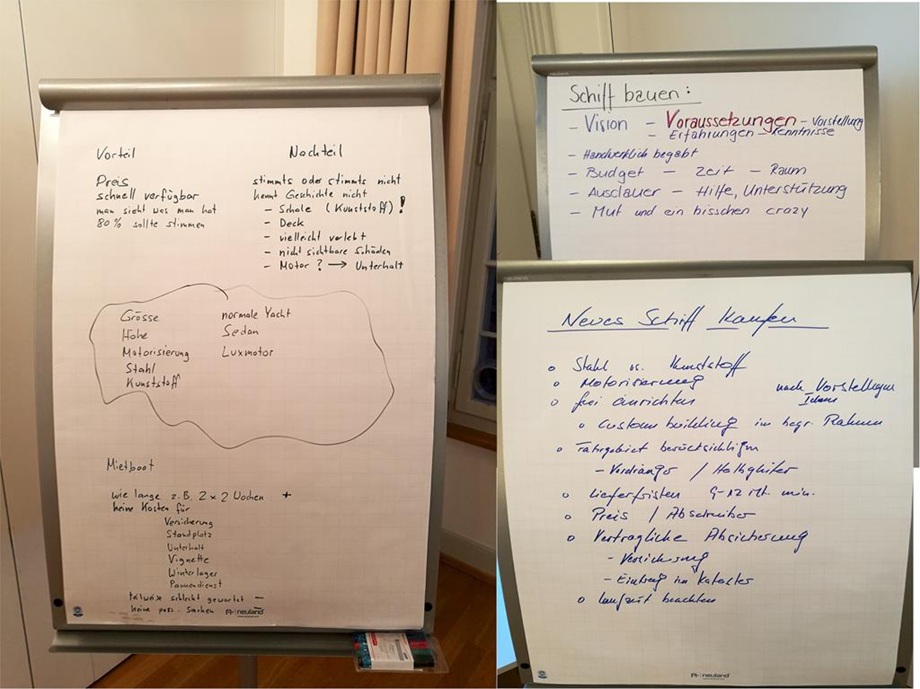 Vorteil
Preis
schnell verfügbar
man sieht was man hat
80% sollte stimmen
Nachteil
stimmts oder stimmts nicht
kennt Geschichte nicht
- Schale (Kunststoff) !
- Deck
- vielleicht verlebt
- nicht sichtbare Schäden
- Motor ? → Unterhalt
Grösse
Höhe
Motorisierung
Stahl
Kunststoff
normale Yacht
Sedan
Luxmotor
Mietboot
wie lange z.B. 2 x 2 Wochen +
keine Kosten für
Versicherung
Standplatz
Unterhalt
Vignette
Winterlager
Pannendienst
teilweise schlecht gewartet -
keine pers. Sachen
neuland
Schiff bauen :
- Vision - Voraussetzungen - Vorstellung
- Erfahrungen - Kenntnisse
- Handwerklich begabt
- Budget - Zeit - Raum
- Ausdauer - Hilfe, Unterstützung
- Mut und ein bisschen crazy
Neues Schiff kaufen
o Stahl vs. Kunststoff
o Motorisierung
o frei einrichten
nach Vorstellungen
o Custombuilding im begr. Rahmen
o Fahrgebiet berücksichtigen
- Verdränger / Halbgleiter
o Lieferfristen 9-12 Mt. min.
o Preis / Abschreiber
o Vertragliche Absicherung
- Versicherung
- Eintrag im Kataster
o Laufzeit beachten
neuland